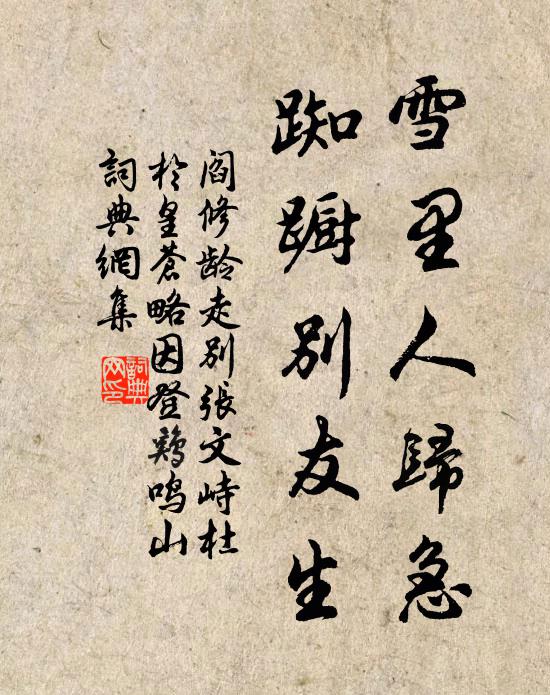 雪里人歸急
踟蹰别友生
阎修龄走别張文峙杜
於皇蒼略因登鷄鸣山
詞典網集
詞典
网印